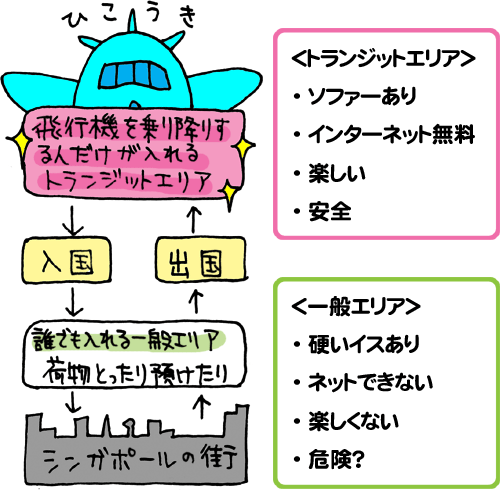 ひこうき
飛行機を乗り降りす
る人だけが入れる
トランジットエリア
入国
出国
誰でも入れる一般エリア
荷物とったり預けたり
シンガポールの街
<トランジットエリア>
・ソファーあり
・インターネット無料
・楽しい
・安全
<一般エリア>
・硬いイスあり
・ネットできない
・楽しくない
・危険?